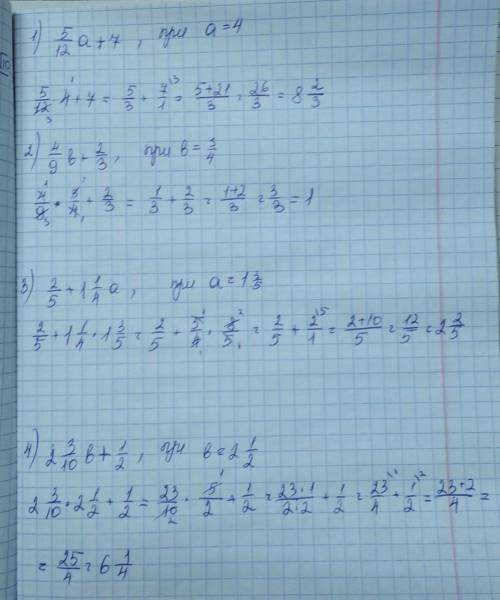 1) 5/12 a + 7, при a = 4
5/12 4 + 7 = 5/3 + 7/1 = (5+21)/3 = 26/3 = 8 2/3
2) 4/9 b + 2/3, при b = 3/4
4/9 · 3/4 + 2/3 = 1/3 + 2/3 = (1+2)/3 = 3/3 = 1
3) 2/5 + 1 1/4 a, при a = 1 3/5
2/5 + 1 1/4 · 1 3/5 = 2/5 + 5/4 · 8/5 = 2/5 + 2/1 = (2+10)/5 = 12/5 = 2 2/5
4) 2 3/10 b + 1/2, при b = 2 1/2
2 3/10 · 2 1/2 + 1/2 = 23/10 · 5/2 + 1/2 = (23·1)/(2·2) + 1/2 = 23/4 + 1/2 = (23+2)/4 =
= 25/4 = 6 1/4